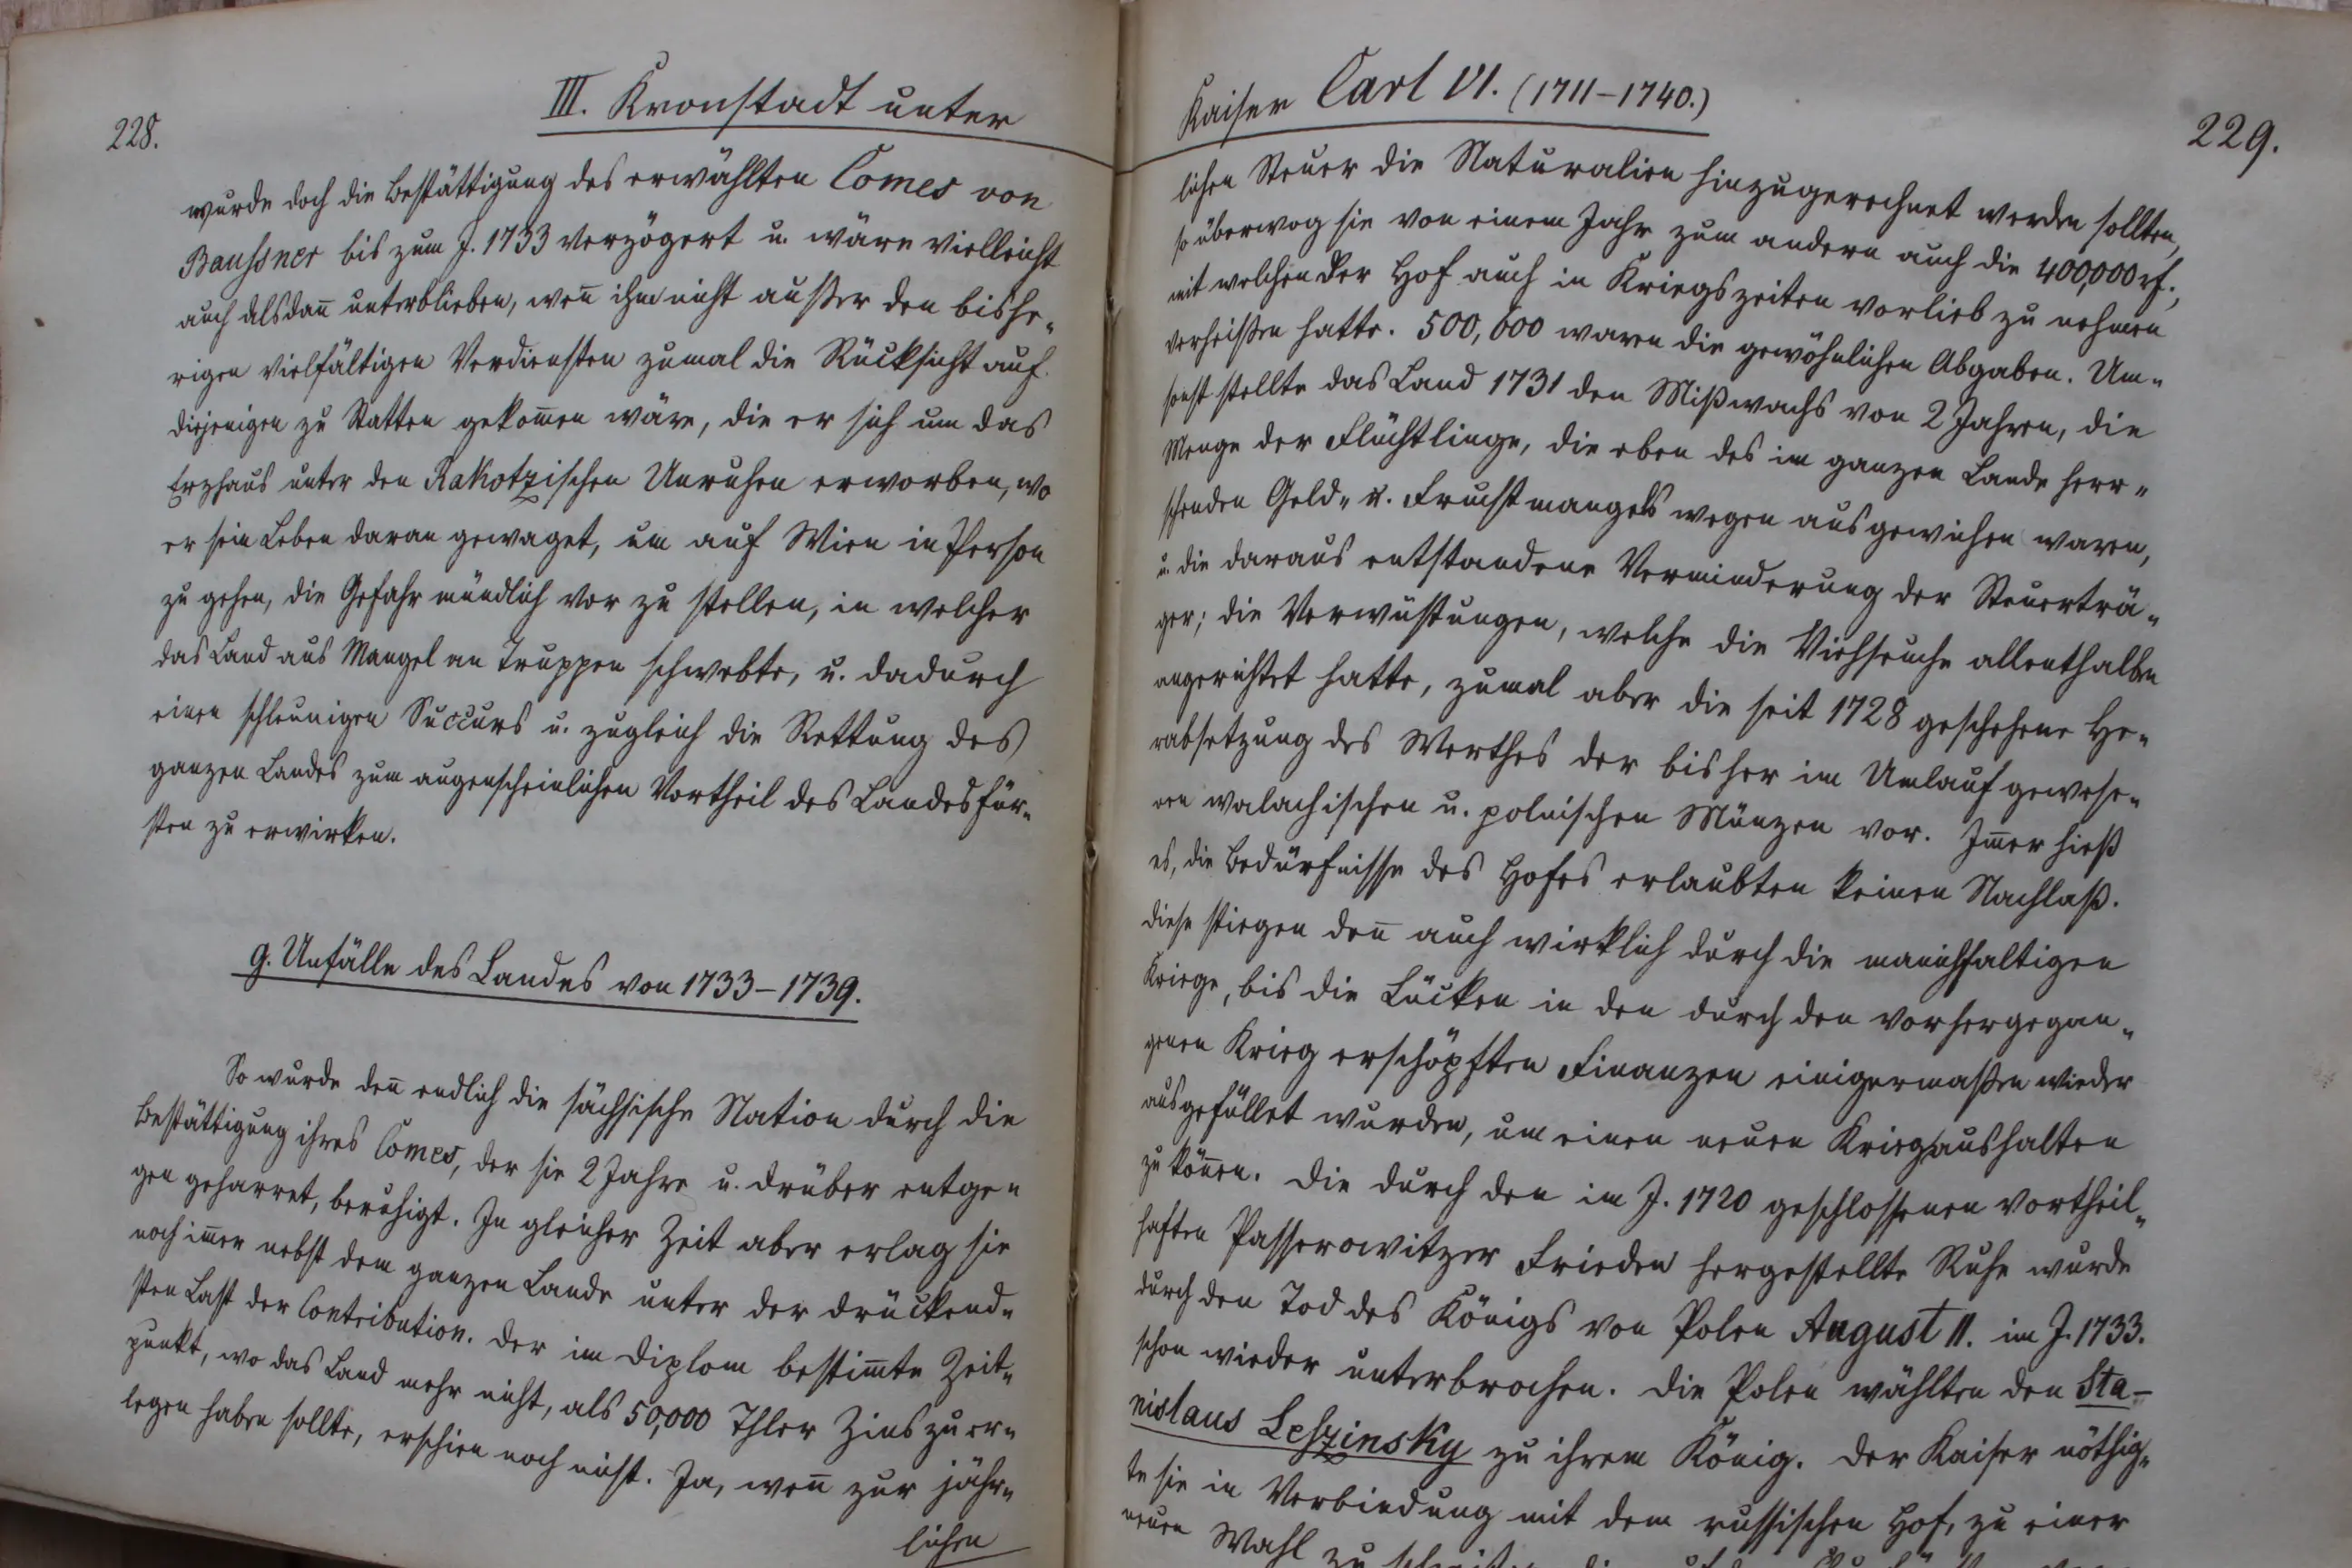 228.
III. Kronstadt unter
wurde doch die Bestättigung des erwählten Comes von
Baussner bis zum J. 1733 verzögert u. wäre vielleicht
auch alsdañ unterblieben, weñ ihm nicht außer den bishe„
rigen vielfältigen Verdiensten zumal die Rücksicht auf
diejenigen zu Statten gekom̄en wäre, die er sich um das
Erzhaus unter den Rakotzischen Unruhen erworben, wo
er sein Leben daran gewaget, um auf Wien in Person
zu gehen, die Gefahr mündlich vor zu stellen, in welcher
das Land aus Mangel an Truppen schwebte, u. dadurch
einen schleunigen Succurs u. zugleich die Rettung des
ganzen Landes zum augenscheinlichen Vortheil des Landesfür„
sten zu erwirken.
g. Unfälle des Landes von 1733–1739.
So wurde deñ endlich die sächsische Nation durch die
Bestättigung ihres Comes, der sie 2 Jahre u. drüber entge„
gen geharret, beruhigt. In gleicher Zeit aber erlag sie
noch im̄er nebst dem ganzen Lande unter der drückend„
sten Last der Contribution. Der im Diplom bestim̄te Zeit„
punkt, wo das Land mehr nicht, als 50,000 Thler Zins zu er„
legen haben sollte, erschien noch nicht. Ja, weñ zur jähr„
lichen
Kaiser Carl VI. (1711–1740.)
229.
lichen Steuer die Naturalien hinzugerechnet werden sollten,
so überwog sie von einem Jahr zum andern auch die 400,000 rf.,
mit welchen der Hof auch in Kriegszeiten vorlieb zu nehmen
verheißen hatte. 500,600 waren die gewöhnlichen Abgaben. Um„
sonst stellte das Land 1731 den Mißwachs von 2 Jahren, die
Menge der Flüchtlinge, die eben des im ganzen Lande herr„
schenden Geld„ u. Fruchtmangels wegen ausgewichen waren,
u. die daraus entstandene Verminderung der Steuerträ„
ger; die Verwüstungen, welche die Viehseuche allenthalben
angerichtet hatte, zumal aber die seit 1728 geschehene He„
rabsetzung des Werthes der bisher im Umlauf gewese„
nen walachischen u. polnischen Münzen vor. Im̄er hieß
es, die Bedürfnisse des Hofes erlaubten keinen Nachlaß.
Diese stiegen deñ auch wirklich durch die mannichfaltigen
Kriege, bis die Lücken in den durch den vorhergegan„
genen Krieg erschöpften Finanzen einigermaßen wieder
ausgefüllet wurden, um einen neuen Krieg aushalten
zu köñen. Die durch den im J. 1720 geschlossenen vortheil„
haften Passerowitzer Frieden hergestellte Ruhe wurde
durch den Tod des Königs von Polen August II. im J. 1733.
schon wieder unterbrochen. Die Polen wählten den Sta–
nislaus Leszinsky zu ihrem König. Der Kaiser nöthig„
te sie in Verbindung mit dem russischen Hof, zu einer
neuen Wahl zu